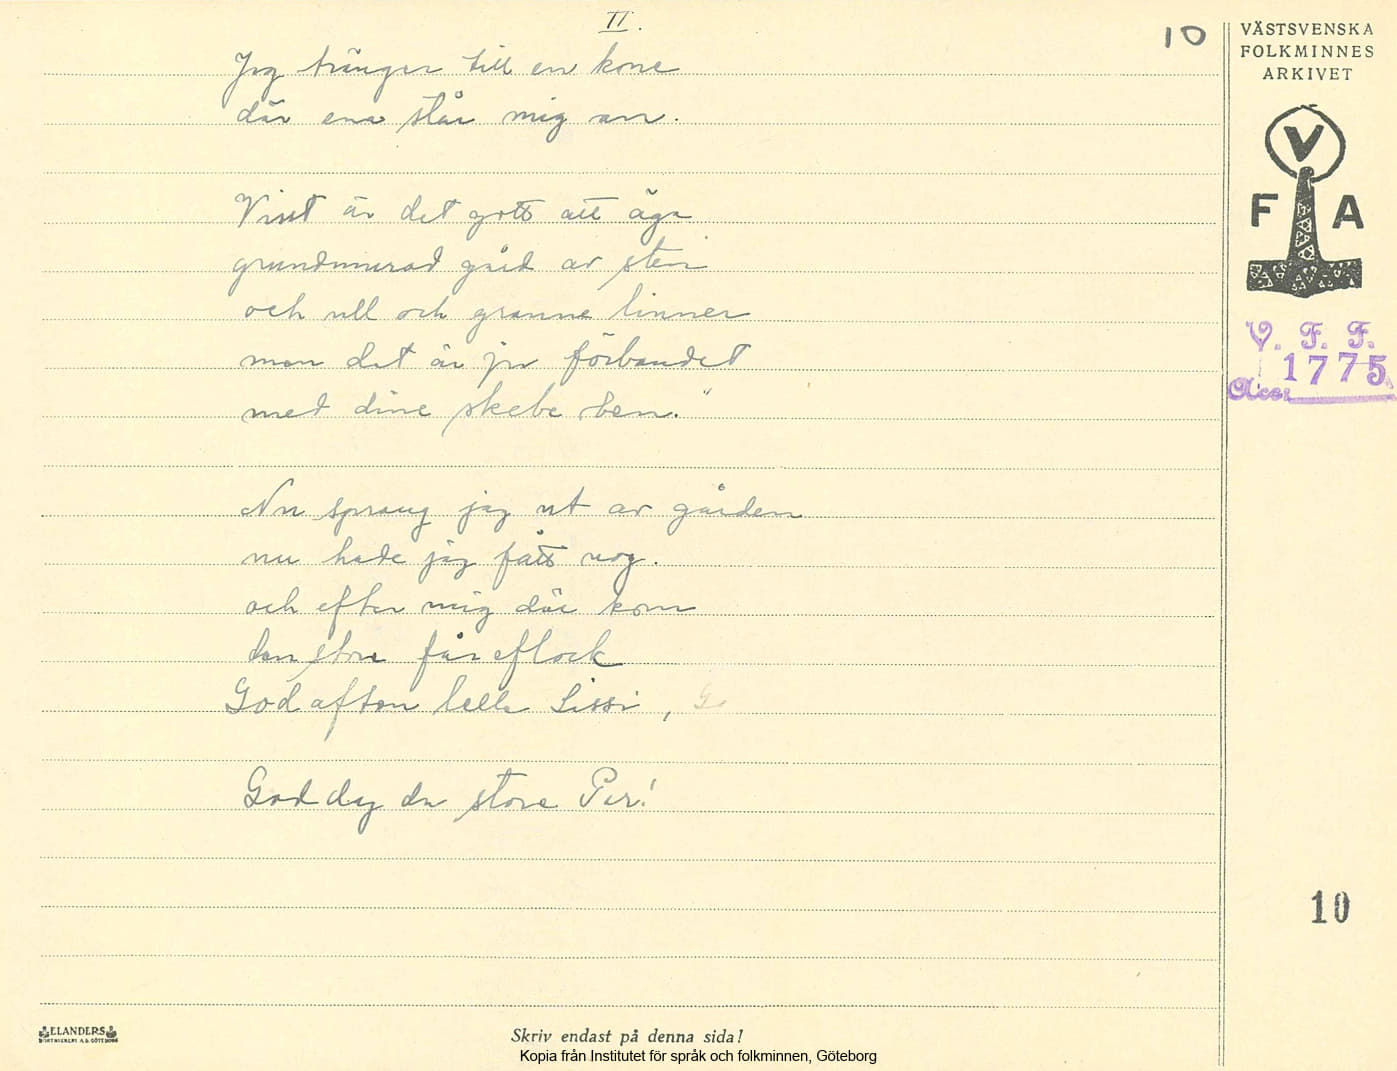 II.
10
Jeg tränger till en kone
där ena står mig an.
Visst är det gott att äga
grundmurad gård av sten
och ull och granna linner
men det är ju förbandet
med dine skebe ben."
Nu sprang jag ut av gården
nu hade jag fått nog.
och efter mig där kom
den store fåreflock
God afton lelle Sissi, Go
God dag du store Per!
VÄSTSVENSKA
FOLKMINNES
ARKIVET
V
F A
V. F. F.
1775
Acc:
10
ELANDERS
BOKTRYCKERI A.B. GÖTEBORG
Skriv endast på denna sida!
Kopia från Institutet för språk och folkminnen, Göteborg